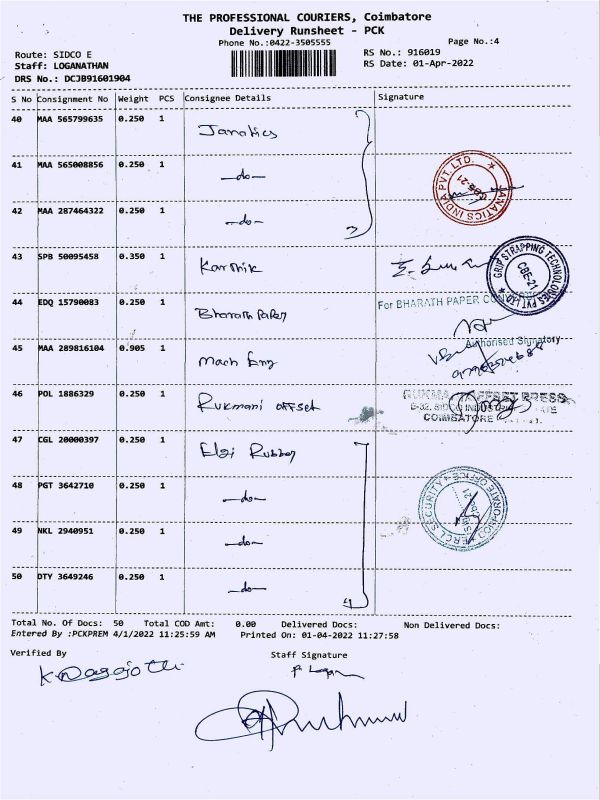 THE PROFESSIONAL COURIERS, Coimbatore
Delivery Runsheet - PCK
Phone No.:0422-3505555
Page No.:4
Route: SIDCO E
RS No.: 916019
Staff: LOGANATHAN
RS Date: 01-Apr-2022
DRS No.: DCJB91601904
S No Consignment No Weight PCS Consignee Details Signature
40 MAA 565799635 0.250 1 Janatics
41 MAA 565008856 0.250 1 -do-
JANATICS INDIA PVT. LTD.
42 MAA 287464322 0.250 1 -do-
43 SPB 50095458 0.350 1 Karthik
GRIP STRAPPING TECHNOLOGIES PVT LTD
CBE-21
44 EDQ 15790083 0.250 1 Bharath Paper
For BHARATH PAPER
Authorised Signatory
45 MAA 289816104 0.905 1 Mach Eng
46 POL 1886329 0.250 1 Rukmani offset
OFFSET PRESS
COIMBATORE
47 CGL 20000397 0.250 1 Elgi Rubber
48 PGT 3642710 0.250 1 -do-
ERCL SECURITY CORPORATE OFFICE
49 NKL 2940951 0.250 1 -do-
50 DTY 3649246 0.250 1 -do-
Total No. Of Docs: 50 Total COD Amt: 0.00 Delivered Docs: Non Delivered Docs:
Entered By :PCKPREM 4/1/2022 11:25:59 AM Printed On: 01-04-2022 11:27:58
Verified By
Staff Signature